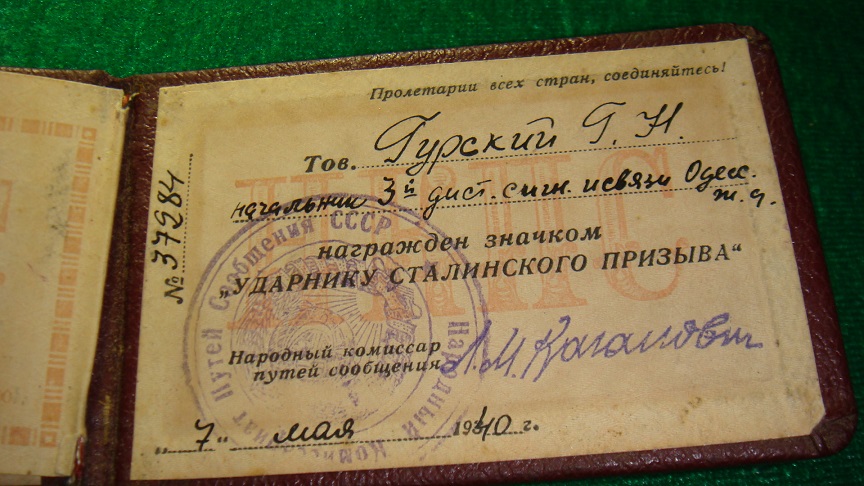 Пролетарии всех стран, соединяйтесь!
Тов. Гурский Г. Н.
начальник 3й дист. сигн. и связи Одесс.
ж. д.
награжден значком
„УДАРНИКУ СТАЛИНСКОГО ПРИЗЫВА“
Народный комиссар
путей сообщения Л. М. Каганович
„ 7 “ мая 1940 г.
№ 37984
НКПС
Народный Комиссариат Путей Сообщения СССР